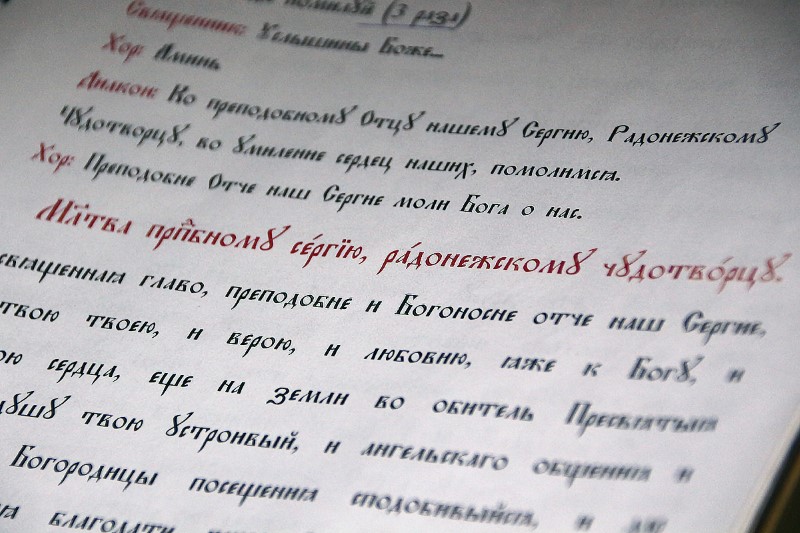 помилуй (3 раза)
Священник: Услышины Боже...
Хор: Аминь
Диакон: Ко преподобному Отцу нашему Сергию, Радонежскому
Чудотворцу, во умиление сердец наших, помолимся.
Хор: Преподобне Отче наш Сергие моли Бога о нас.
Мл҃тва прп҃бному се́ргїю, ра́донежскому чудотво́рцу.
священная главо, преподобне и Богоносне отче наш Сергие,
твою твоею, и верою, и любовию, яже к Богу, и
ою сердца, еще на земли во обитель Пресвятыя
душу твою устроивый, и ангельскаго общения и
Богородицы посещения сподобивыйся, и
благодати